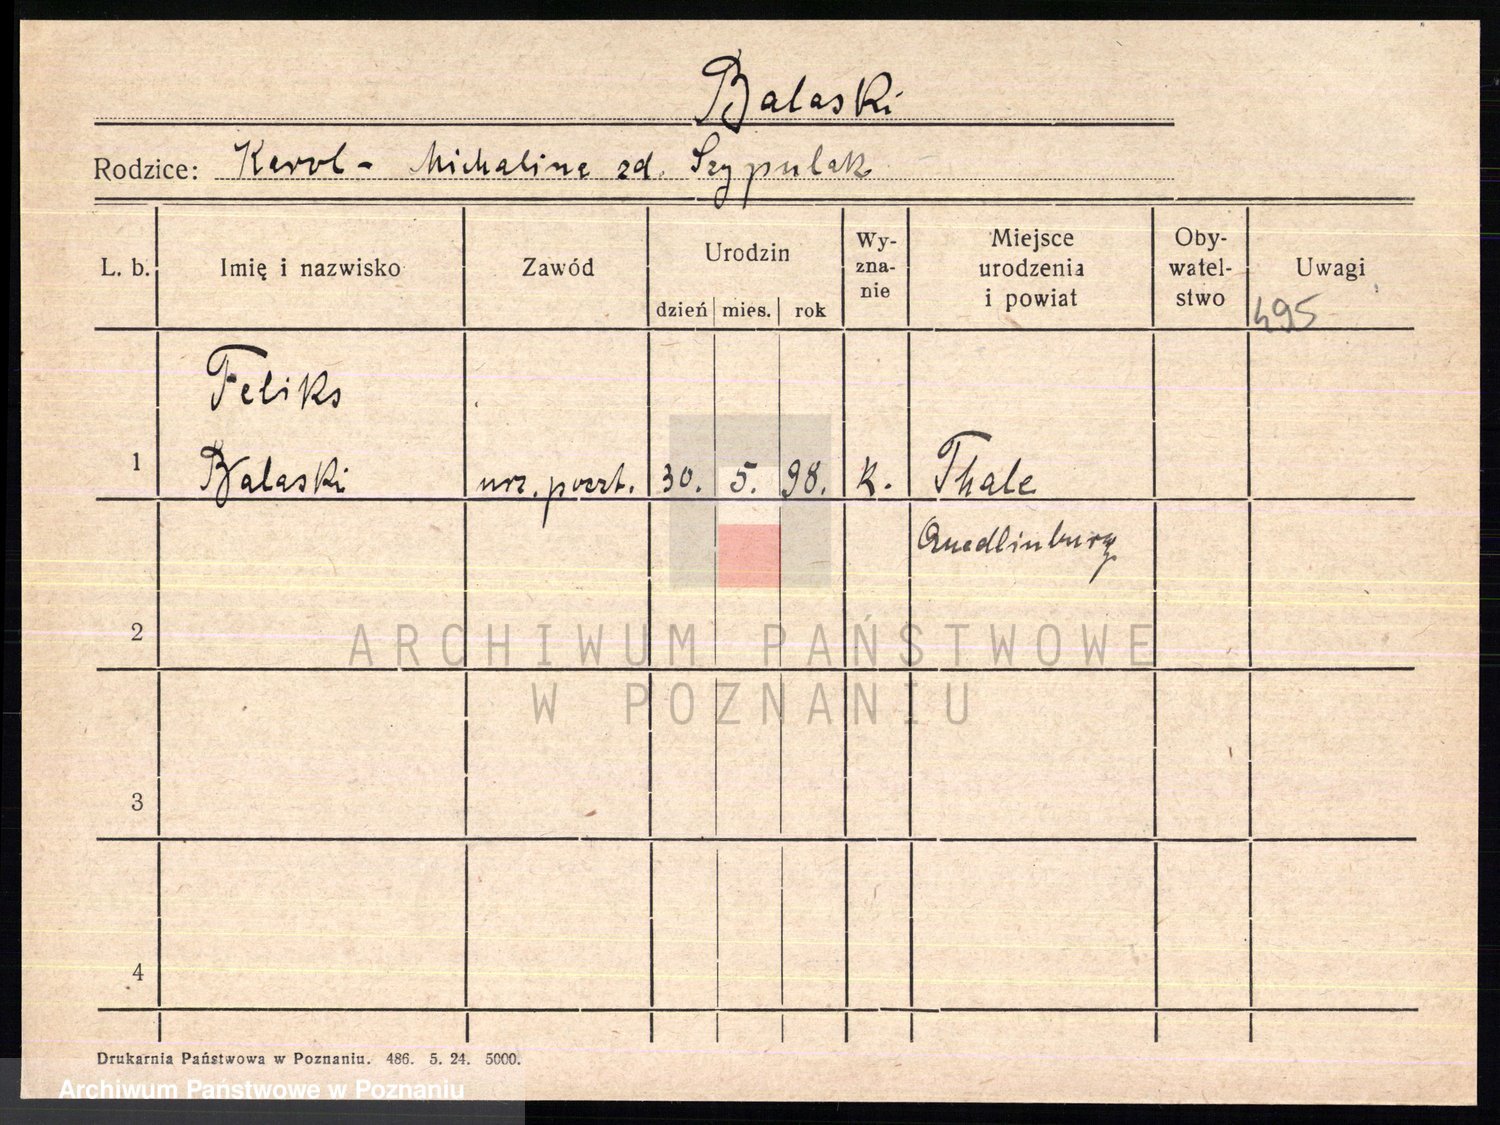 Balaski
Rodzice: Karol - Michalina zd. Szypulak
L. b. Imię i nazwisko Zawód Urodzin Wy-zna-nie Miejsce urodzenia i powiat Oby-watel-stwo Uwagi
dzień mies. rok
495
Feliks
1 Balaski urz. poczt. 30. 5. 98. k. Thale
Quedlinburg
2
ARCHIWUM PAŃSTWOWE
W POZNANIU
3
4
Drukarnia Państwowa w Poznaniu. 486. 5. 24. 5000.
Archiwum Państwowe w Poznaniu